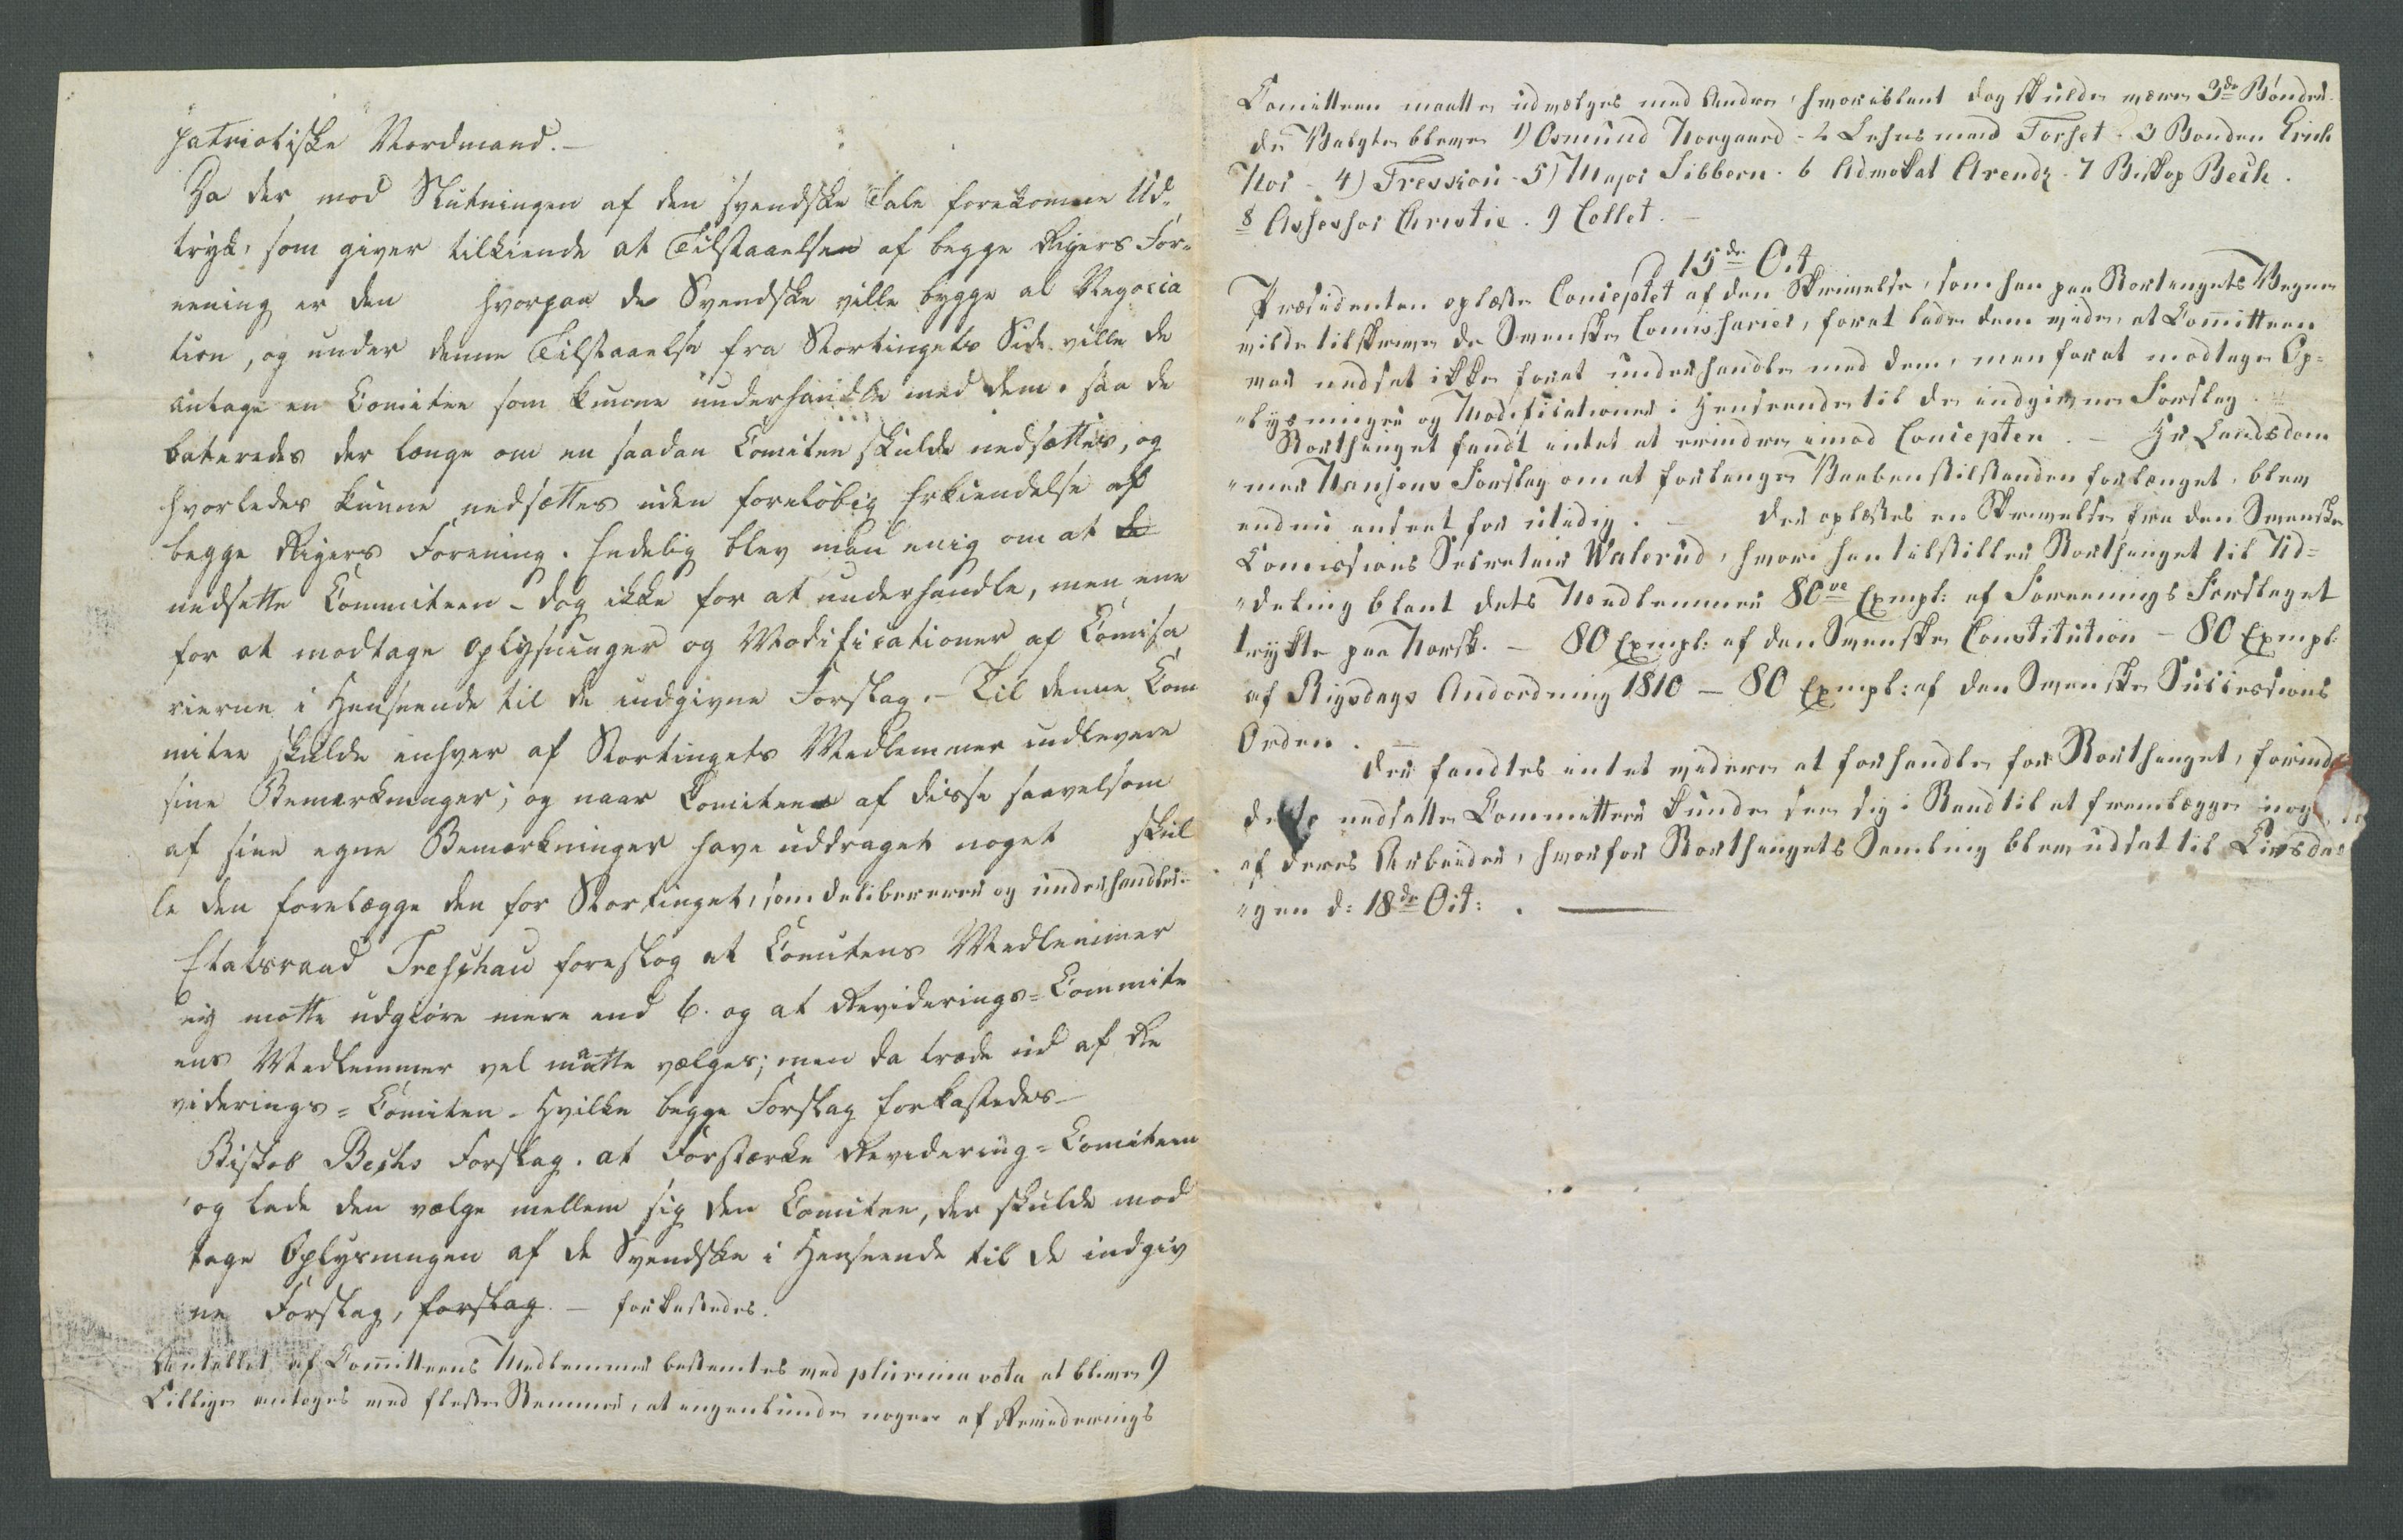 patriotiske Nordmænd. —
Da der mod Slutningen af den svendske Tale forekomme Ud-
tryk, som giver tilkiende at Tilstaaelsen af begge Rigers For-
eening er den hvorpaa de Svendske ville bygge al Negocia
tion, og under denne Tilstaaelse fra Stortingets Side ville de
antage en Comitee som kunne underhandle med dem. saa de
bateredes der længe om en saadan Comitee skulde nedsættes, og
hvorledes kunne nedsættes uden foreløbig Erkiendelse af
begge Rigers Forening. Endelig blev man enig om at de
nedsette Commiteen – dog ikke for at underhandle, men ene
for at modtage Oplysninger og Modificationer af Comisa
rierne i Henseende til de indgivne Forslag. – Til denne Com
mitee skulde enhver af Stortingets Medlemmer indlevere
sine Bemærkninger; og naar Comiteen af disse saavelsom
af sine egne Bemærkninger have uddraget noget skul
le den forelægge den for Stortinget, som delibererer og underhandler.
Etatsraad Treschau foreslog at Comiteens Medlemmer
ey motte udgiøre mere end 6. og at Reviderings=Commite
ens Medlemmer vel maatte vælges; men da træde ud af Re
viderings=Comiteen – Hvilke begge Forslag forkastedes –
Biskob Bechs Forslag. at Forstærke Revidering=Comiteen
og lade den vælge mellem sig den Comitee, der skulde mod
tage Oplysningen af de Svendske i Henseende til de indgiv
ne Forslag, forslag. – forkastedes.
Antallet af Committeens Medlemmer bestemtes med plurima vota at blive 9
Tillige antoges med fleste Stemmer, at ingenlunde nogen af Reviderings
Comitteen maatte udvælges med Andre, hvoriblant dog skulde være 3de Bönder.
de Valgte bleve 1) Osmund Norgaard – 2 Lehnsmand Forset – 3 Bonden Erich
Moe – 4) Tresckou – 5) Major Sibbern. 6 Advokat Arendz. 7 Biskop Bech.
8 Assessor Christie. 9 Collet. –
D 15de Oct
Præsidenten oplæste Conceptet af den Skrivelse, som han paa Storthingets Vegne
vilde tilskrive de Svenske Commissarier, forat lade dem vide, at Committeen
var nedsat ikke forat underhandle med dem, men forat modtage Op=
"lysninger og Modificationer i Henseende til de indgivne Forslag.
Storthinget fandt intet at erindre imod Concepten. – Hr Landsdom
"mer Hansens Forslag om at forlange Vaabenstilstanden forlænget, blev
endnu anseet for utidig. – der oplæstes en Skrivelse fra den Svenske
Comissions Secretair Walerud, hvori han tilstiller Storthinget til Ud=
"deling blant dets Medlemmer 80ve Exempl: af Foreenings Forslaget
trykte paa Norsk. – 80 Exempl: af den Svenske Constitution – 80 Exempl:
af Rigsdags Andordning 1810 – 80 Exempl: af den Svenske Successions
Orden.
der fandtes intet videre at forhandle for Storthinget, forind
nedsatte Committeer kunde see sig i Stand til at fremlægge
af deres Arbeider, hvorfor Storthingets Samling blev udsat til Tirsda
"gen d: 18de Oct: . —